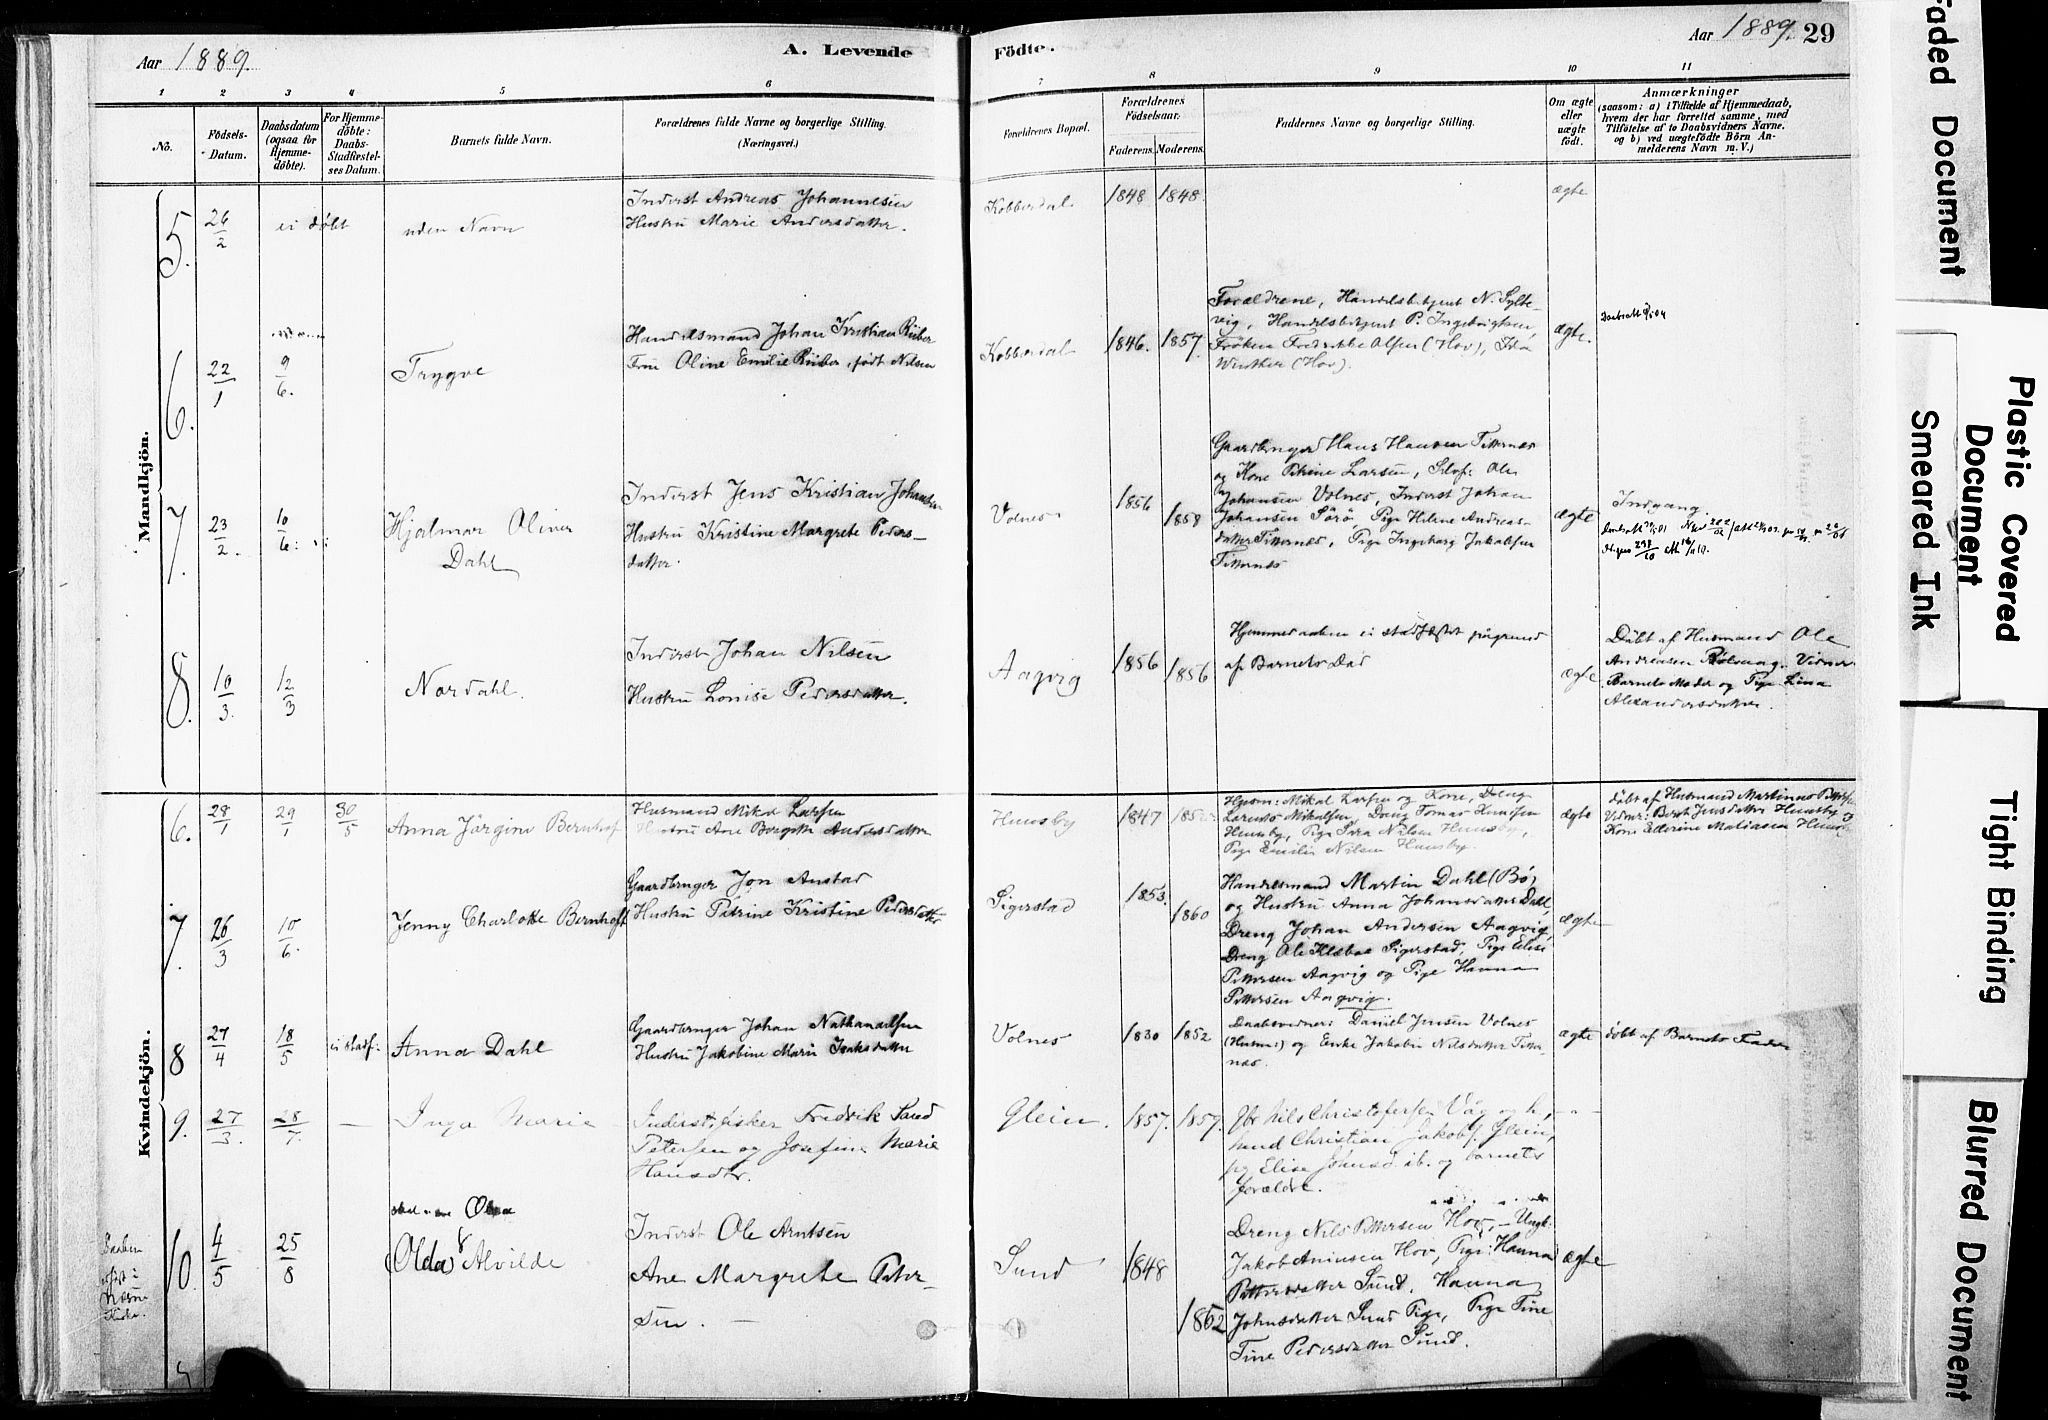 Aar 1889.
A. Levende
Födte.
Aar 1889. 29
1 2 3 4 5 6 7 8 9 10 11
No.
Födsels-
Datum.
Daabsdatum
(ogsaa for
Hjemme-
döbte).
For Hjemme-
döbte:
Daabs-
Stadfæstel-
ses Datum.
Barnets fulde Navn.
Forældrenes fulde Navne og borgerlige Stilling.
(Næringsvei.)
Forældrenes Bopæl.
Forældrenes
Födselsaar.
Faderens. Moderens.
Faddernes Navne og borgerlige Stilling.
Om ægte
eller
uægte
födt.
Anmærkninger
(saasom: a) i Tilfælde af Hjemmedaab,
hvem der har forrettet samme, med
Tilföielse af to Daabsvidners Navne.
og b) ved uægtefödte Börn An-
melderens Navn m. V.)
Mandkjön.
5. 26/2 ei döbt uden Navn
Inderst Andreas Johannesen
Hustru Marie Andersdatter.
Kobberdal 1848 1848. ægte
6. 22/1 9/6. Trygve
Handelsmand Johan Kristian Riiber
Frue Oline Emilie Riiber, födt Nilsen
Kobberdal 1846. 1857.
Forældrene, Handelsbetjent N. Sylte-
vig, Handelsbetjent P. Ingebrigtsen,
Fröken Fredrikke Olsen (Hov), Ida
Winther (Hov).
ægte.
7. 23/2. 10/6. Hjalmar Oliver
Dahl
Inderst Jens Kristian Johansen
Hustru Kristine Margrete Peders-
datter.
Volnes 1856 1858
Gaardbruger Hans Hansen Titternes
og Kone Petrine Larsen, Selvf: Ole
Johansen Volnes, Inderst Johan
Johansen Sörö, Pige Helene Andreas-
datter Titternes, Pige Ingeborg Jakobsen
Titternes
ægte Indgang.
8. 10/3. 12/3 Nordahl.
Inderst Johan Nilsen
Hustru Lonise Pedersdatter.
Aagvig 1856 1856
Hjemmedaaben ei stadfæstet pågrund
af Barnets Död
ægte
Döbt af Husmand Ole
Andreasen Rölvaag. Vidner
Barnets Moder og Pige Lina
Alexandersdatter.
Kvindekjön.
6. 28/1 29/1 30/5 Anna Jörgine Bernhof
Husmand Mikal Larsen
Hustru Ane Bergitte Andersdatter
Hunsby 1847
Husm: Mikal Larsen og Kone, Dreng
Lorents Mikalsen, Dreng Tomas
Hunsby, Pige Sara Nilsen Hunsby,
Pige Emilie Nilsen Hunsby.
ægte
döbt af Husmand Martinus
Vidner: Beret Jensdatter Hunsby og
Kone Ellerine Matiasen
7. 26/3 10/6. Jenny Charlotte Bernhoft
Gaardbruger Jon Anstad
Hustru Petrine Kristine Pedersdatter
Sigerstad 1853. 1860
Handelsmand Martin Dahl (Bö)
og Hustru Anna Johansdatter Dahl,
Dreng Johan Andersen Aagvig,
Dreng Ole Klæboe Sigerstad, Pige Elise
Pettersen Aagvig og Pige Hanna
Pettersen Aagvig.
ægte
8 27/4 18/5 ei stadf: Anna Dahl
Gaardbruger Johan Nathanaelsen
Hustru Jakobine Marie Isaksdatter
Volnes 1830 1852
Daabsvidner: Daniel Jensen Volnes
(Husm:) og Enke Jakobin Nilsdatter Titter-
nes.
ægte döbt af Barnets Fader
9. 27/3. 28/7 — Inga Marie
Inderst, fisker Fredrik Sand
Petersen og Josefine Marie
Hansdtr.
Glein. 1857. 1857.
Gbr. Nils Christofersen Våg og h,
Christian Jakobs. Glein,
pg Elise Johnsd. ib. og barnets
forældre.
10. 4/5 25/8 Olda Alvilde
Inderst Ole Arntsen
Ane Margrete Peter-
sen. —
Sund 1848 1862
Dreng Nils Pettersen Hov, — Ungk:
Jakob Aninsen Hov, Pige: Hanna
Pettersdatter Sund. Hanna
Johnsdatter Sund Pige, Pige Tine
Tine Pedersdatter Sund.
ægte
Faded Document
Plastic Covered
Document
Smeared Ink
Tight Binding
Blurred Document